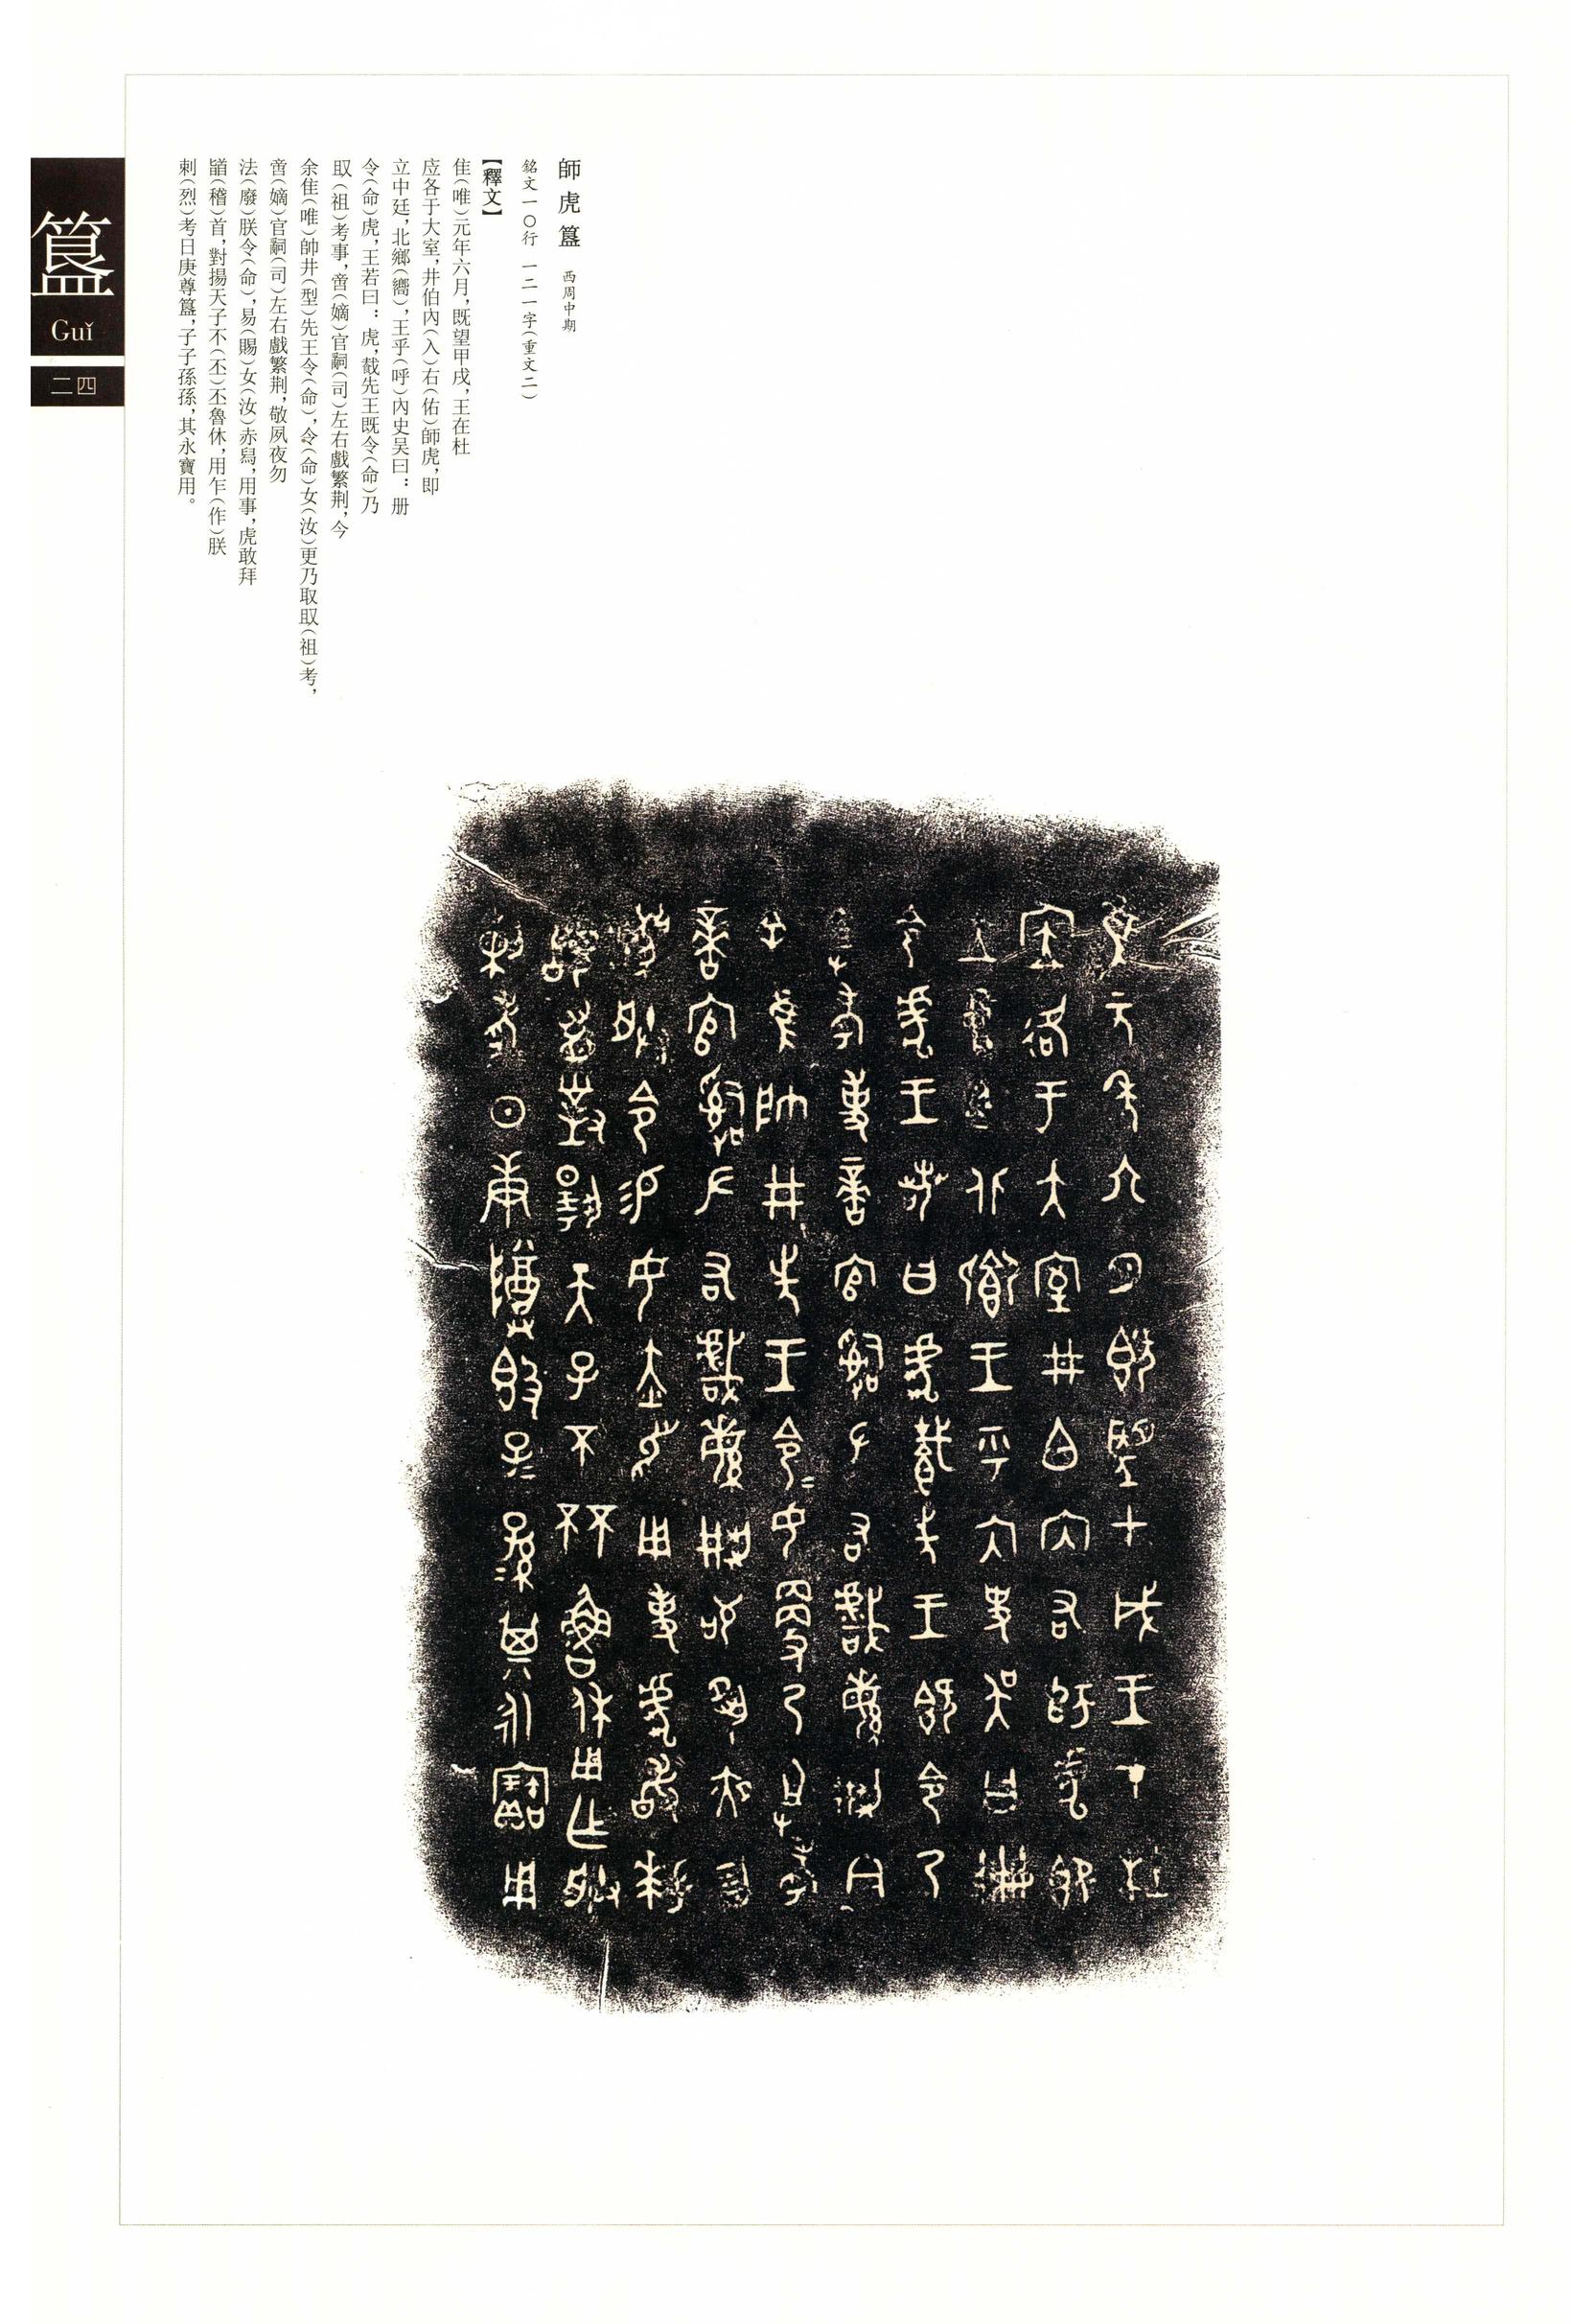 師虎簋 西周中期
銘文一〇行 一二一字(重文二)
【釋文】
隹(唯)元年六月,既望甲戌,王在杜
应各于大室,井伯內(入)右(佑)師虎,即
立中廷,北鄉(嚮),王乎(呼)內史吴曰:册
令(命)虎,王若曰:虎,觀先王既令(命)乃
取(祖)考事,啻(嫡)官嗣(司)左右戲繁荆,今
余隹(唯)帥井(型)先王令(命),令(命)女(汝)更乃取取(祖)考,
啻(嫡)官嗣(司)左右戲繁荆,敬夙夜勿
法(廢)朕令(命),易(賜)女(汝)赤舄,用事,虎敢拜
(稽)首,對揚天子不(丕)丕魯休,用乍(作)朕
剌(烈)考日庚尊簋,子子孫孫,其永寶用。
簋
Guǐ
二四